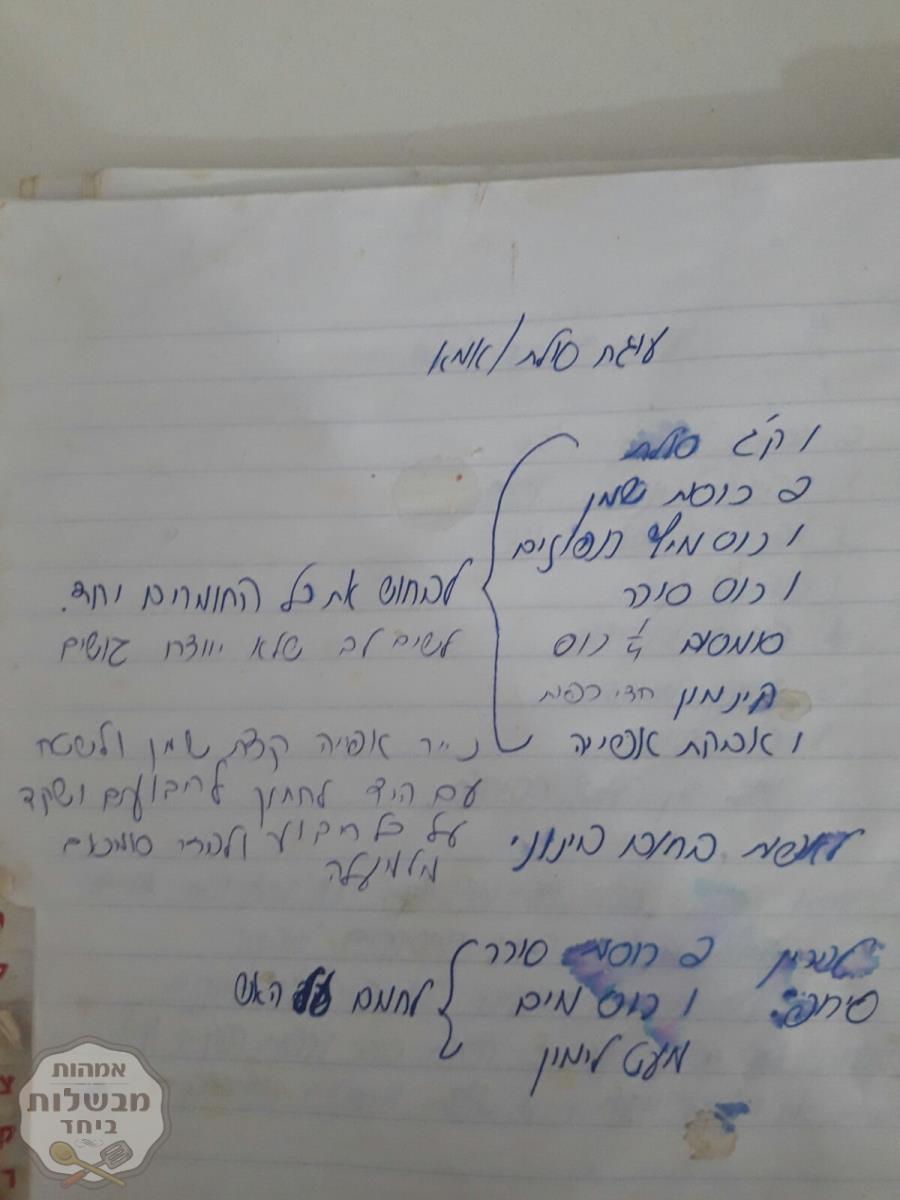 עוגת סולת / אמא
1 ק"ג סולת
2 כוסות שמן
1 כוס מיץ תפוזים
1 כוס סוכר
סומסום 1/4 כוס
קינמון חצי כפית
1 אבקת אפייה
לבחוש את כל החומרים יחד.
לשים לב שלא יווצרו גושים
נייר אפיה קצת שמן ולשטח
עם היד לחתוך לריבועים ושקד
על כל ריבוע ולפזר סומסום
מלמעלה
לאפות בחום בינוני
להכין
סירופ:
2 כוסות סוכר
1 כוס מים
מעט לימון
לחמם על האש
אמהות
מבשלות
ביחד